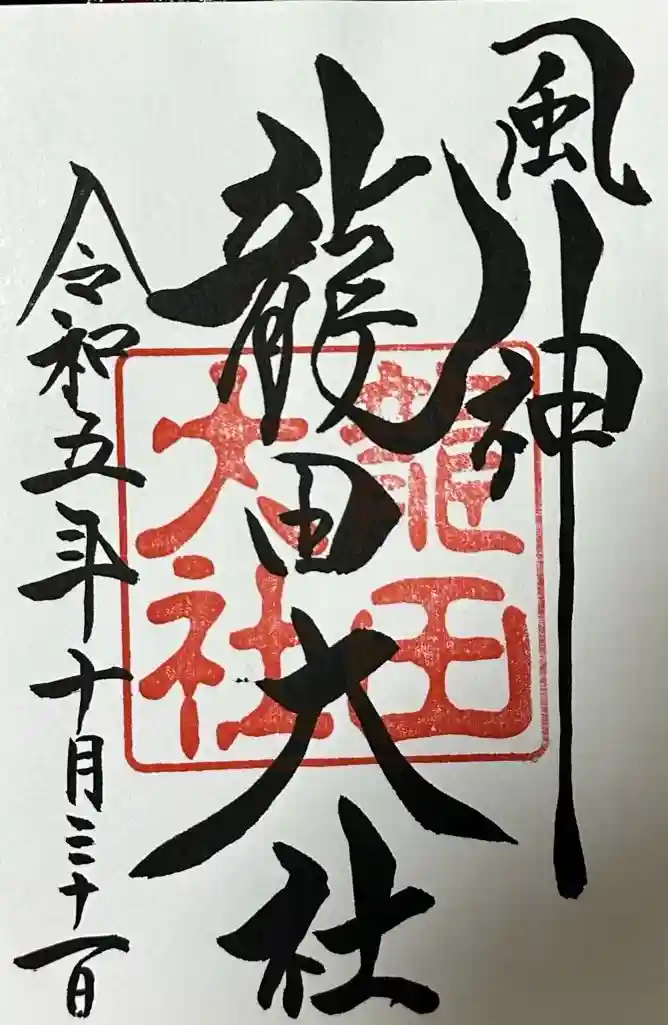 風神
龍田大社
龍田
大社
令和五年十月三十一日